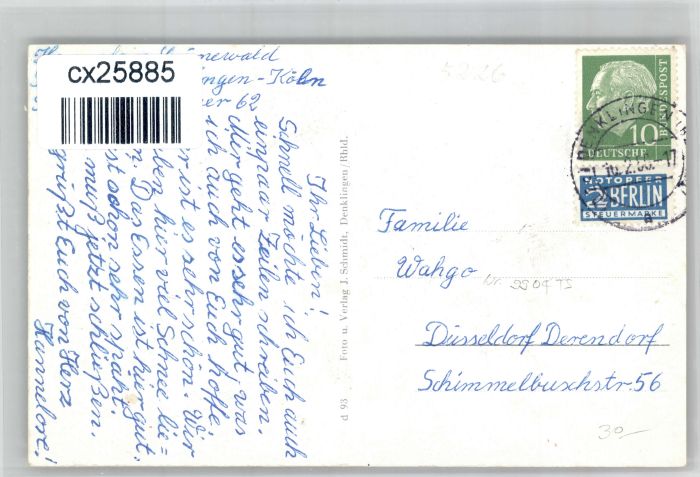 cx25885
newald
ingen-Köln
er 62
Ihr Lieben!
Schnell möchte ich Euch auch
einpaar Zeilen schreiben.
Mir geht es sehr gut was
ich auch von Euch hoffe.
r ist es sehr schön. Wir
ben hier viel Schnee lie=
n. Das Essen ist hier gut.
st schon sehr spaht
muß jetzt schließen.
grüßt Euch von Herz
Hannelore!
d 93 Foto u. Verlag J. Schmidt, Denklingen/Rhld.
10
DEUTSCHE
BUNDESPOST
DENKLINGEN
NOTOPFER
2 BERLIN
STEUERMARKE
Familie
Wahgo
Düsseldorf Derendorf
Schimmelbuschstr. 56
30